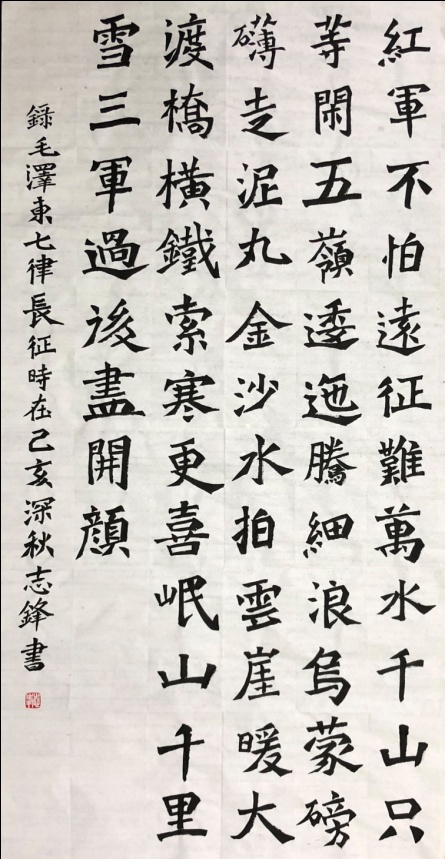 紅軍不怕遠征難萬水千山只
等閑五嶺逶迤騰細浪烏蒙磅
礴走泥丸金沙水拍雲崖暖大
渡橋橫鐵索寒更喜岷山千里
雪三軍過後盡開顏
錄毛澤東七律長征時在己亥深秋志鋒書